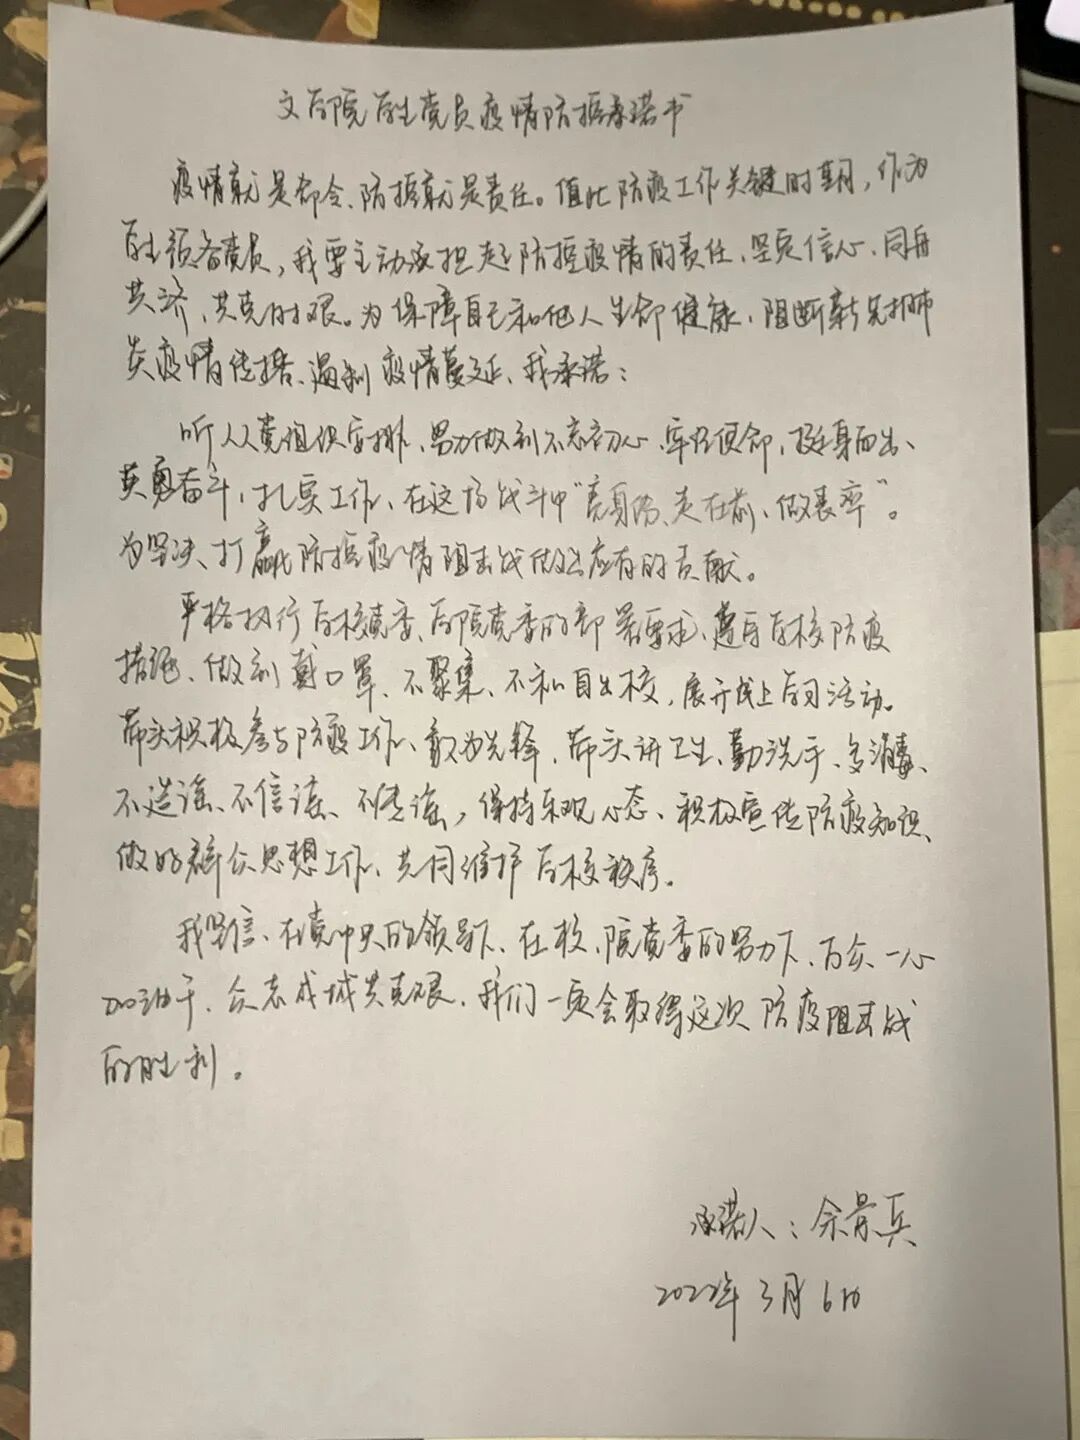 文学院学生党员疫情防控承诺书
疫情就是命令、防控就是责任。值此防疫工作关键时期，作为
学生预备党员，我要主动承担起防控疫情的责任、坚定信心、同舟
共济、共克时艰。为保障自己和他人生命健康、阻断新冠肺
炎疫情传播、遏制疫情蔓延、我承诺：
听从党组织安排、努力做到不忘初心、牢记使命，挺身而出、
英勇奋斗，扎实工作、在这场战斗中“亮身份、走在前、做表率”。
为坚决打赢防控疫情阻击战做出应有的贡献。
严格执行学校党委、学院党委的部署要求、遵守学校防疫
措施、做到戴口罩、不聚集、不私自出校，展开线上学习活动。
带头积极参与防疫工作、敢为先锋，带头讲卫生、勤洗手、多消毒、
不造谣、不信谣、不传谣，保持乐观心态、积极宣传防疫知识、
做好群众思想工作、共同维护学校秩序。
我坚信、在党中央的领导下、在校、院党委的努力下、万众一心
加油干，众志成城共克艰，我们一定会取得这次防疫阻击战
的胜利。
承诺人：余景兵
2022年3月6日